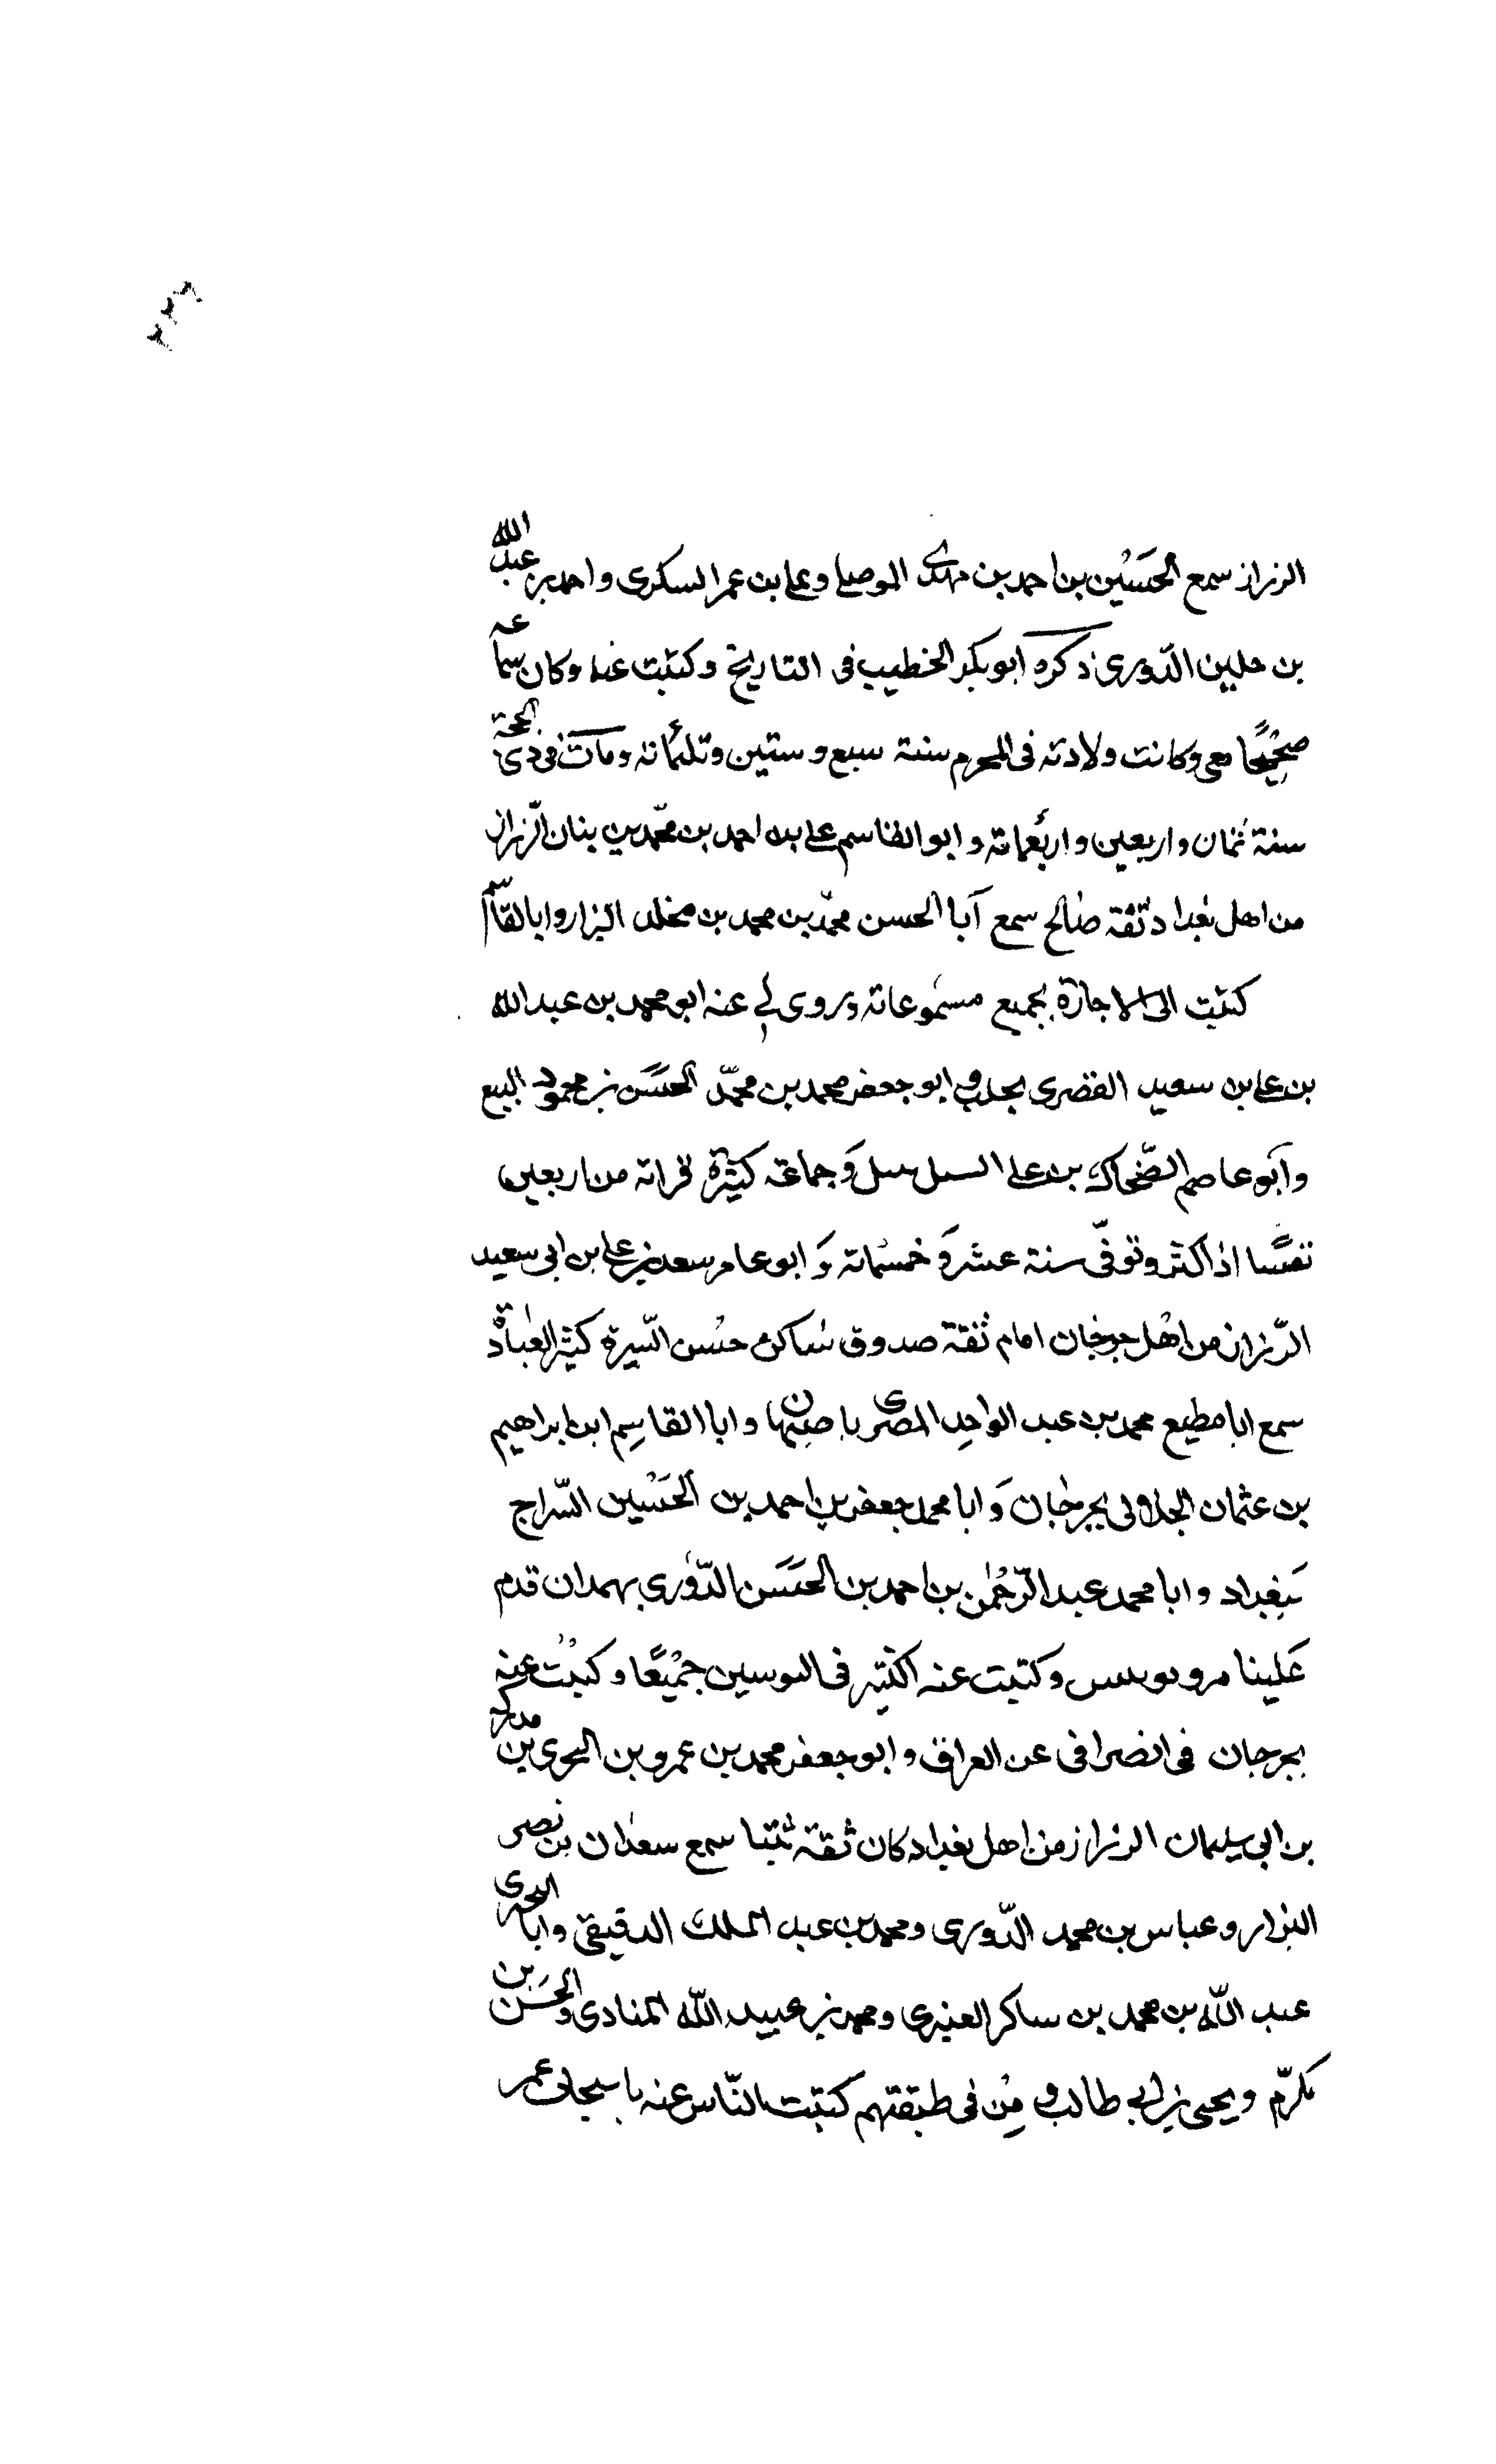 الرزاز سمع الحسين بن احمد بن مهدى الموصلى وعلى بن عمر السكرى واحمد بن عبد الله
بن حلين الدّورى ذكره ابو بكر الخطيب فى التاريخ وكتبت عنه وكان سماعه
صحيحًا معى وكانت ولادته فى المحرم سنة سبع وستين وثلثمائة ومات فى ذى الحجة
سنة ثمان واربعين واربعمائة وابو القاسم على بن احمد بن محمّد بن بنان الرّزاز
من اهل بغداد ثقة صالح سمع ابا الحسن محمّد بن محمد بن مخلد البزار وابا القاسم
كتبت الى الاجازة بجميع مسموعاته وروى لى عنه ابو محمد بن عبد الله
بن على بن سعيد القصرى بحلب وابو جعفر محمد بن محمّد الحَسَن بن محمود البيع
وابو عاصم الضّحاك بن على وجماعة كثيرة قرابة من اربعين
نفسًا اذ اكثر وتوفّى سنة عشر وخمسمائة وَابو عامر سعد بن على بن ابى سعيد
الرّزاز من اهل جرجان امام ثقة صدوق ساكن حسن السّيرة كثير العبادة
سمع ابا مطيع محمد بن عبد الواحد المصرى باصبهان وابا القاسم ابن ابراهيم
بن عثمان الجلابى بجرجان وَابا محمد جعفر بن احمد بن الحُسَين السّراج
ببغداد وابا محمد عبد الرّحمٰن بن احمد بن الحَسَن الدّورى بهمدان قدم
عَلينا مرو وكتبت عنه الكثير فى جميعًا وكتبت عنه
بجرجان فى انصرافى عن العراق وابو جعفر محمد بن عمرو بن البحرى بن مدرك
بن ابى سليمان الرزاز من اهل بغداد كان ثقة ثبتا سمع سعدان بن نصر
البزار وعباس بن محمد الدّورى ومحمد بن عبد الملك الدقيقى وابا البحرى
عبد اللّه بن محمد بن ساكر العنبرى ومحمد بن عبيد اللّه المنادى والحسن بن
مكرّم ويحيى بن ابى طالب ومن فى طبقتهم كتبت النّاس عنه عمر